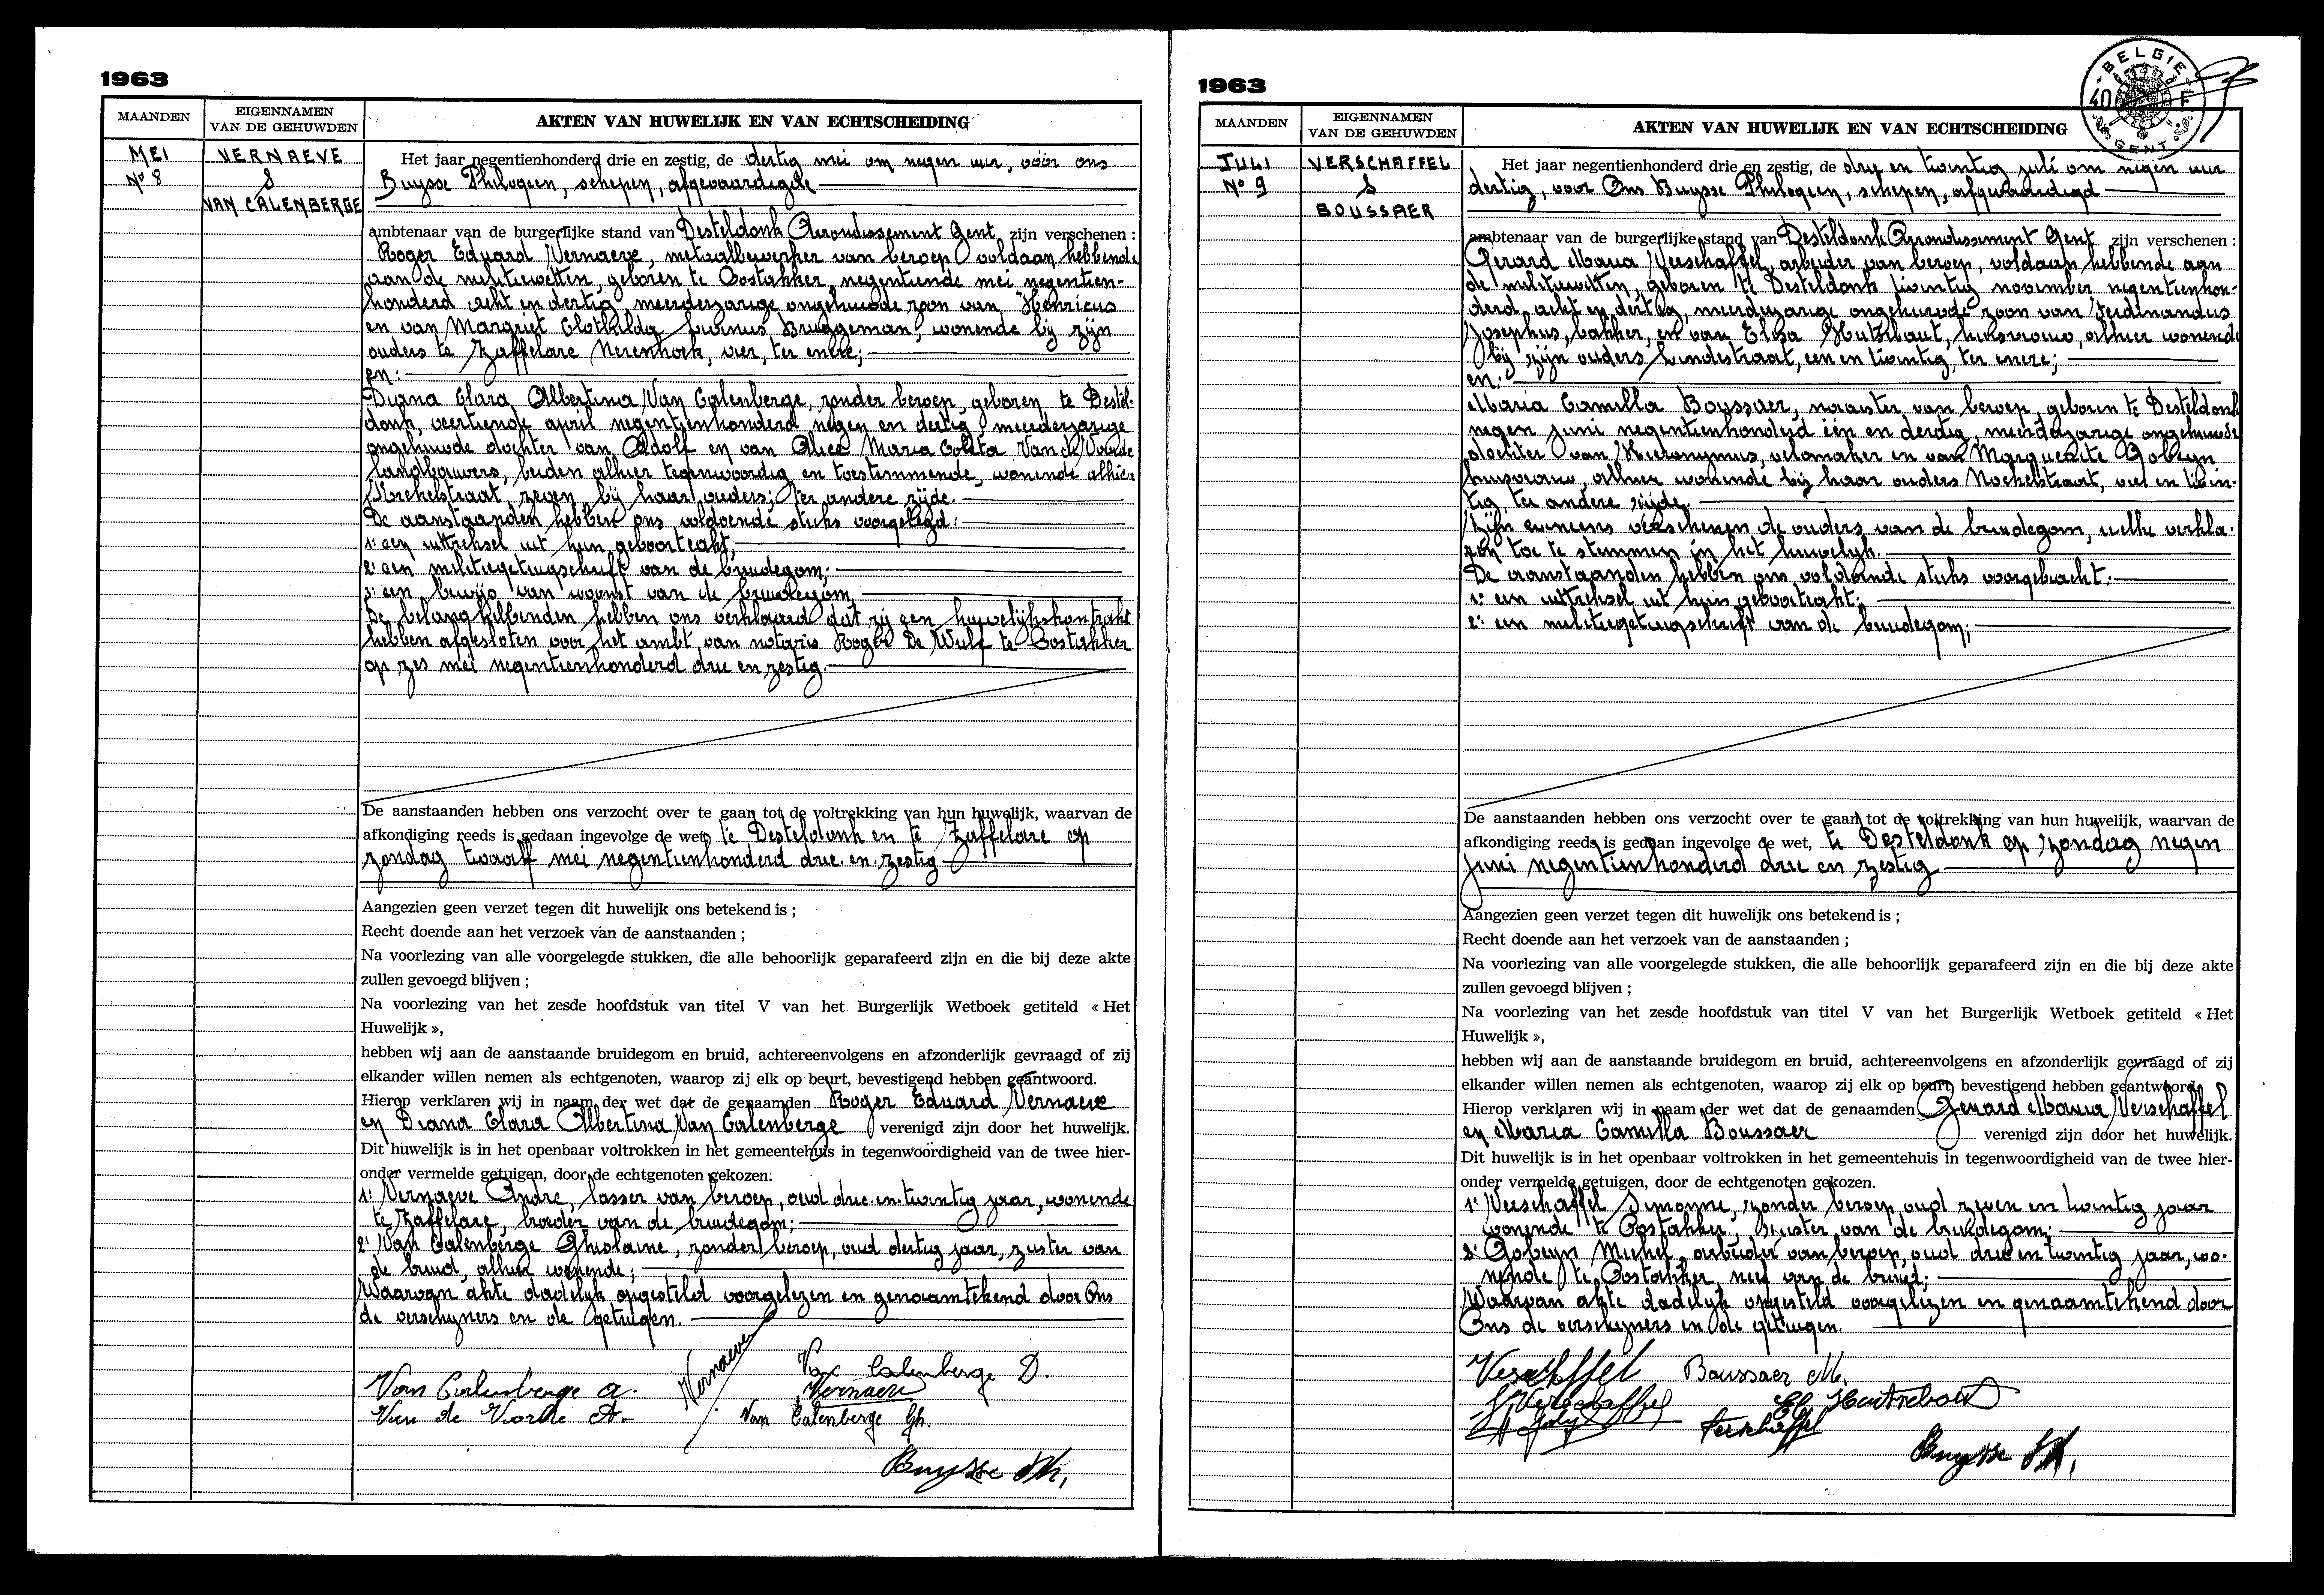 1963
MAANDEN
EIGENNAMEN
VAN DE GEHUWDEN
AKTEN VAN HUWELIJK EN VAN ECHTSCHEIDING
MEI
Nº 8
VERNAEVE
&
VAN CALENBERGE
Het jaar negentienhonderd drie en zestig, de dertig mei om negen uur, vóór ons
Buysse Philogeen, schepen, afgevaardigde
ambtenaar van de burgerlijke stand van Desteldonk Arrondissement Gent zijn verschenen :
Roger Eduard Vernaeve, metaalbewerker van beroep voldaan hebbende
aan de militiewetten, geboren te Oostakker, negentiende mei negentien-
honderd acht en dertig, meerderjarige ongehuwde zoon van Henricus
en van Margriet Clothilda Bruggeman, wonende bij zijn
ouders te Zaffelare Nerenhoek, vier, ter enere;
en:
Diana Clara Albertina Van Calenberge, zonder beroep, geboren te Destel-
donk, veertiende april negentienhonderd negen en dertig, meerderjarige
ongehuwde dochter van Adolf en van Alice Maria Coleta Van de Voorde
landbouwers, beiden alhier tegenwoordig en toestemmende, wonende alhier
zeven, bij haar ouders; ter andere zijde.
De aanstaanden hebben ons voldoende stuks voorgelegd:
1: een uittreksel uit hun geboorteakt;
2: een militiegetuigschrift van de bruidegom;
3: een bewijs van woonst van de bruidegom
De belanghebbenden hebben ons verklaard dat zij een huwelijkskontrakt
hebben afgesloten voor het ambt van notaris Roger De Wulf te Oostakker
op zes mei negentienhonderd drie en zestig.
De aanstaanden hebben ons verzocht over te gaan tot de voltrekking van hun huwelijk, waarvan de
afkondiging reeds is gedaan ingevolge de wet, te Desteldonk en te Zaffelare op
zondag twaalf mei negentienhonderd drie en zestig
Aangezien geen verzet tegen dit huwelijk ons betekend is ;
Recht doende aan het verzoek van de aanstaanden ;
Na voorlezing van alle voorgelegde stukken, die alle behoorlijk geparafeerd zijn en die bij deze akte
zullen gevoegd blijven ;
Na voorlezing van het zesde hoofdstuk van titel V van het Burgerlijk Wetboek getiteld « Het
Huwelijk »,
hebben wij aan de aanstaande bruidegom en bruid, achtereenvolgens en afzonderlijk gevraagd of zij
elkander willen nemen als echtgenoten, waarop zij elk op beurt, bevestigend hebben geantwoord.
Hierop verklaren wij in naam der wet dat de genaamden Roger Eduard Vernaeve
en Diana Clara Albertina Van Calenberge verenigd zijn door het huwelijk.
Dit huwelijk is in het openbaar voltrokken in het gemeentehuis in tegenwoordigheid van de twee hier-
onder vermelde getuigen, door de echtgenoten gekozen:
1: Vernaeve André, lasser van beroep, oud drie en twintig jaar, wonende
te Zaffelare, broeder van de bruidegom;
2: Van Calenberge Ghislaine, zonder beroep, oud dertig jaar, zuster van
de bruid, alhier wonende;
Waarvan akte dadelijk opgesteld voorgelezen en genaamtekend door Ons
de verschijners en de getuigen.
Van Calenberge D.
Van Calenberge A.
Vernaeve
Vernaeve
Van de Voorde A.
Van Calenberge Gh.
Buysse Ph,
1963
BELGIE
40 F
GENT
MAANDEN
EIGENNAMEN
VAN DE GEHUWDEN
AKTEN VAN HUWELIJK EN VAN ECHTSCHEIDING
JULI
Nº 9
VERSCHAFFEL
&
BOUSSAER
Het jaar negentienhonderd drie en zestig, de drie en twintig juli om negen uur
dertig, voor Ons Buysse Philogeen, schepen, afgevaardigd
ambtenaar van de burgerlijke stand van Desteldonk Arrondissement Gent zijn verschenen :
Gerard Maria Verschaffel, arbeider van beroep, voldaan hebbende aan
de militiewetten, geboren te Desteldonk twintig november negentienhon-
derd acht en dertig, meerderjarige ongehuwde zoon van Ferdinandus
Josephus, bakker, en van Elisa huisvrouw, alhier wonende
bij zijn ouders Lindestraat, een en twintig, ter enere;
en:
Maria Camilla Boussaer, naaister van beroep, geboren te Desteldonk
negen juni negentienhonderd één en dertig, meerderjarige ongehuwde
dochter van Hieronymus, velomaker en van Marguerite Gobeyn
huisvrouw, alhier wonende bij haar ouders en twin-
tig, ter andere zijde.
Zijn eveneens verschenen de ouders van de bruidegom, welke verkla-
ren toe te stemmen in het huwelijk.
De aanstaanden hebben ons voldoende stuks voorgebracht:
1: een uittreksel uit hun geboorteakt;
2: een militiegetuigschrift van de bruidegom;
De aanstaanden hebben ons verzocht over te gaan tot de voltrekking van hun huwelijk, waarvan de
afkondiging reeds is gedaan ingevolge de wet, te Desteldonk op zondag negen
juni negentienhonderd drie en zestig
Aangezien geen verzet tegen dit huwelijk ons betekend is ;
Recht doende aan het verzoek van de aanstaanden ;
Na voorlezing van alle voorgelegde stukken, die alle behoorlijk geparafeerd zijn en die bij deze akte
zullen gevoegd blijven ;
Na voorlezing van het zesde hoofdstuk van titel V van het Burgerlijk Wetboek getiteld « Het
Huwelijk »,
hebben wij aan de aanstaande bruidegom en bruid, achtereenvolgens en afzonderlijk gevraagd of zij
elkander willen nemen als echtgenoten, waarop zij elk op beurt, bevestigend hebben geantwoord.
Hierop verklaren wij in naam der wet dat de genaamden Gerard Maria Verschaffel
en Maria Camilla Boussaer verenigd zijn door het huwelijk.
Dit huwelijk is in het openbaar voltrokken in het gemeentehuis in tegenwoordigheid van de twee hier-
onder vermelde getuigen, door de echtgenoten gekozen.
1: Verschaffel Symonne, zonder beroep, oud zeven en twintig jaar
wonende te Oostakker, zuster van de bruidegom;
2: Gobeyn Michel, arbeider van beroep, oud drie en twintig jaar, wo-
nende te Oostakker, neef van de bruid;
Waarvan akte dadelijk opgesteld voorgelezen en genaamtekend door
Ons de verschijners en de getuigen.
Verschaffel Boussaer M.
Verschaffel
Verschaffel
Buysse Ph,